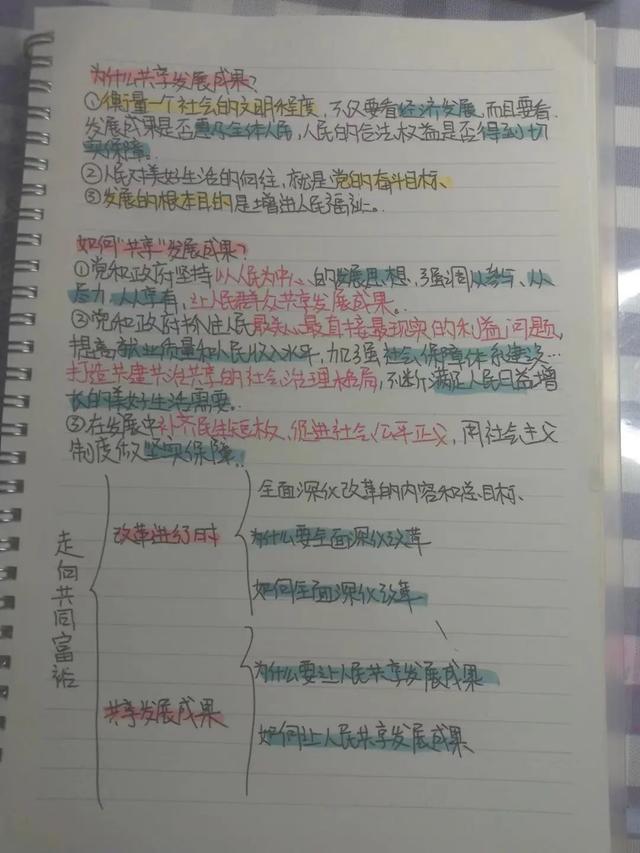 为什么共享发展成果?
①衡量一个社会的文明程度,不仅要看经济发展,而且要看
发展成果是否惠及全体人民,人民的合法权益是否得到切
实保障。
②人民对美好生活的向往,就是党的奋斗目标、
③发展的根本目的是增进人民福祉。
如何"共享"发展成果?
①党和政府坚持以人民为中心的发展思想,强调人人参与、人人
尽力、人人享有,让人民群众共享发展成果。
②党和政府抓住人民最关心最直接最现实的利益问题,
提高就业质量和人民收入水平,加强社会保障体系建设…
打造共建共治共享的社会治理格局,不断满足人民日益增
长的美好生活需要。
③在发展中补齐民生短板,促进社会公平正义,用社会主义
制度做坚实保障。
走向共同富裕
改革进行时
全面深化改革的内容和总目标、
为什么要全面深化改革
如何全面深化改革
共享发展成果
为什么要让人民共享发展成果
如何让人民共享发展成果